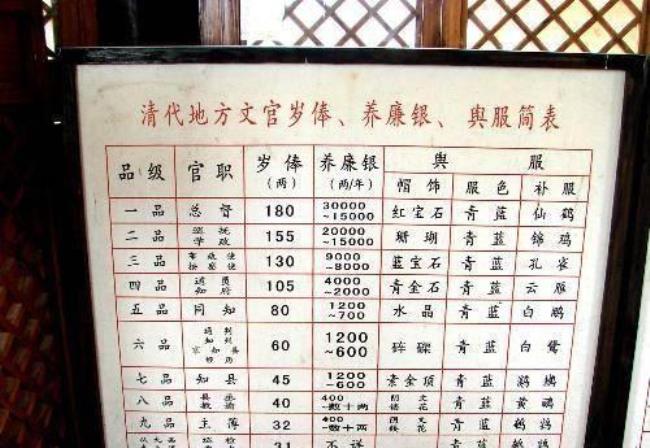 清代地方文官岁俸、养廉银、舆服简表
品级 官职 岁俸(两) 养廉银(两/年) 舆服
帽饰 服色 补服
一品 总督 180 30000~15000 红宝石 青蓝 仙鹤
二品 巡抚 学政 155 20000~15000 珊瑚 青蓝 锦鸡
三品 布政使 按察使 130 9000~8000 蓝宝石 青蓝 孔雀
四品 道员 知府 105 4000~2000 青金石 青蓝 云雁
五品 同知 80 1200~700 水晶 青蓝 白鹇
六品 通判 知州 京知县 60 1200~600 砗磲 青蓝 白鹭
七品 知县 45 1200~600 素金顶 青蓝 鹨鶒
八品 县丞 40 400~数十两 阴文 花 青蓝 黄鹂
九品 主簿 32 400~数十两 花 青蓝 鹌鹑
31 不详 青蓝